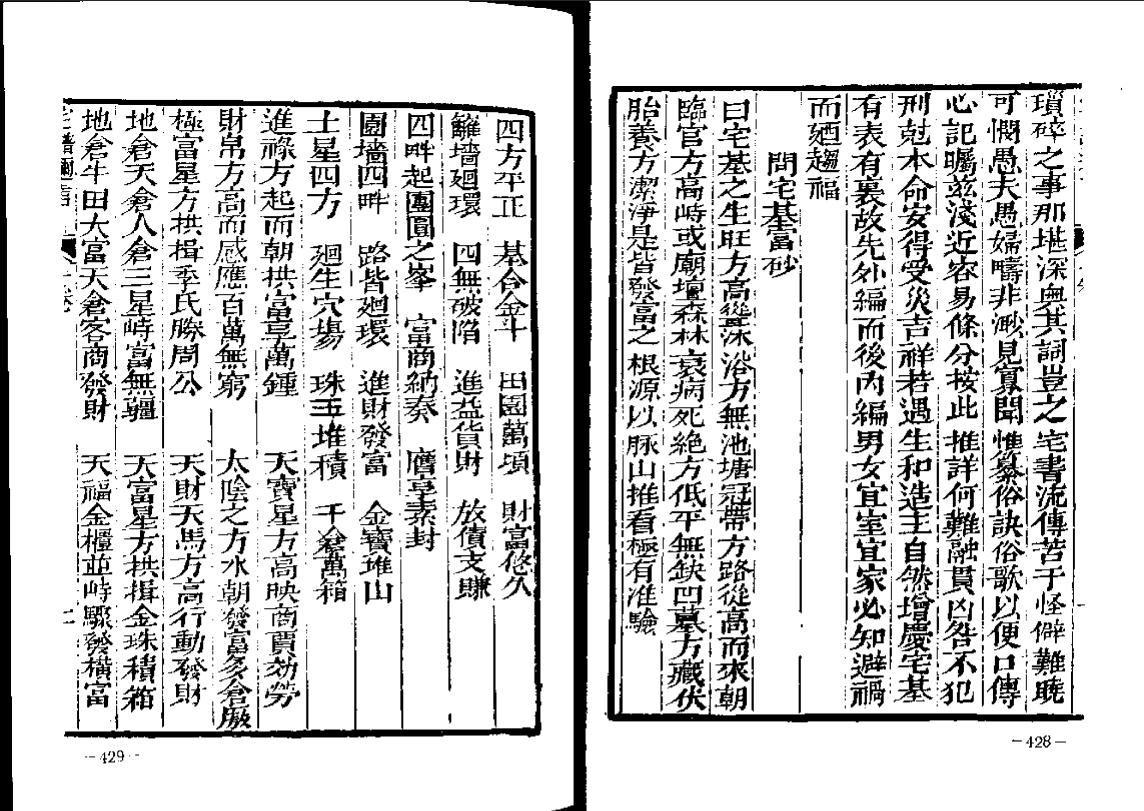 瑣碎之事那堪深奥其詞豈之宅書流傳苦于怪僻難曉
可憫愚夫愚婦疇非渺見寡聞惟纂俗訣俗歌以便口傳
心記矚茲淺近容易條分按此推詳何難融貫凶咎不犯
刑尅本命安得受災吉祥若遇生和造主自然增慶宅基
有表有裏故先外編而後內編男女宜室宜家必知避禍
而廼趨福
問宅基富砂
曰宅基之生旺方高聳沐浴方無池塘冠帶方路從高而來朝
臨官方高峙或廟壇森林衰病死絶方低平無缺凹墓方藏伏
胎養方潔淨是皆發富之根源以脉山推看極有准驗
－428－
四方平正　基合金斗　田園萬頃　財富悠久
籬墻廻環　四無破陷　進益貨財　放債支賺
四畔起團圓之峯　富商納奏　鴈享素封
圍墻四畔　路皆廻環　進財發富　金寶堆山
土星四方　廻生穴塲　珠玉堆積　千倉萬箱
進祿方起而朝拱富享萬鍾　天寶星方高映商賈効勞
財帛方高而感應百萬無窮　太陰之方水朝發富多倉廒
極富星方拱揖季氏勝周公　天財天馬方高行動發財
地倉天倉人倉三星峙富無疆　天富星方拱揖金珠積箱
地倉牛田大富天倉客商發財　天福金櫃並峙驟發橫富
－429－